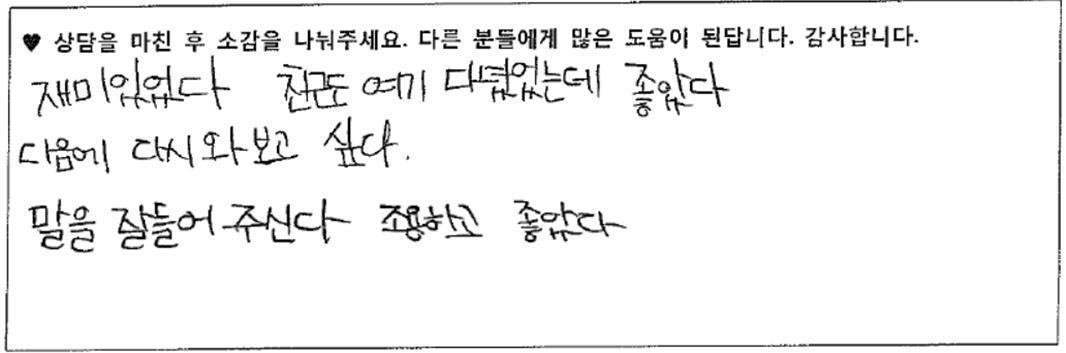 ♥ 상담을 마친 후 소감을 나눠주세요. 다른 분들에게 많은 도움이 된답니다. 감사합니다.
재미있었다 친구도 여기 다녔었는데 좋았다
다음에 다시 와 보고 싶다.
말을 잘들어 주신다 조용하고 좋았다